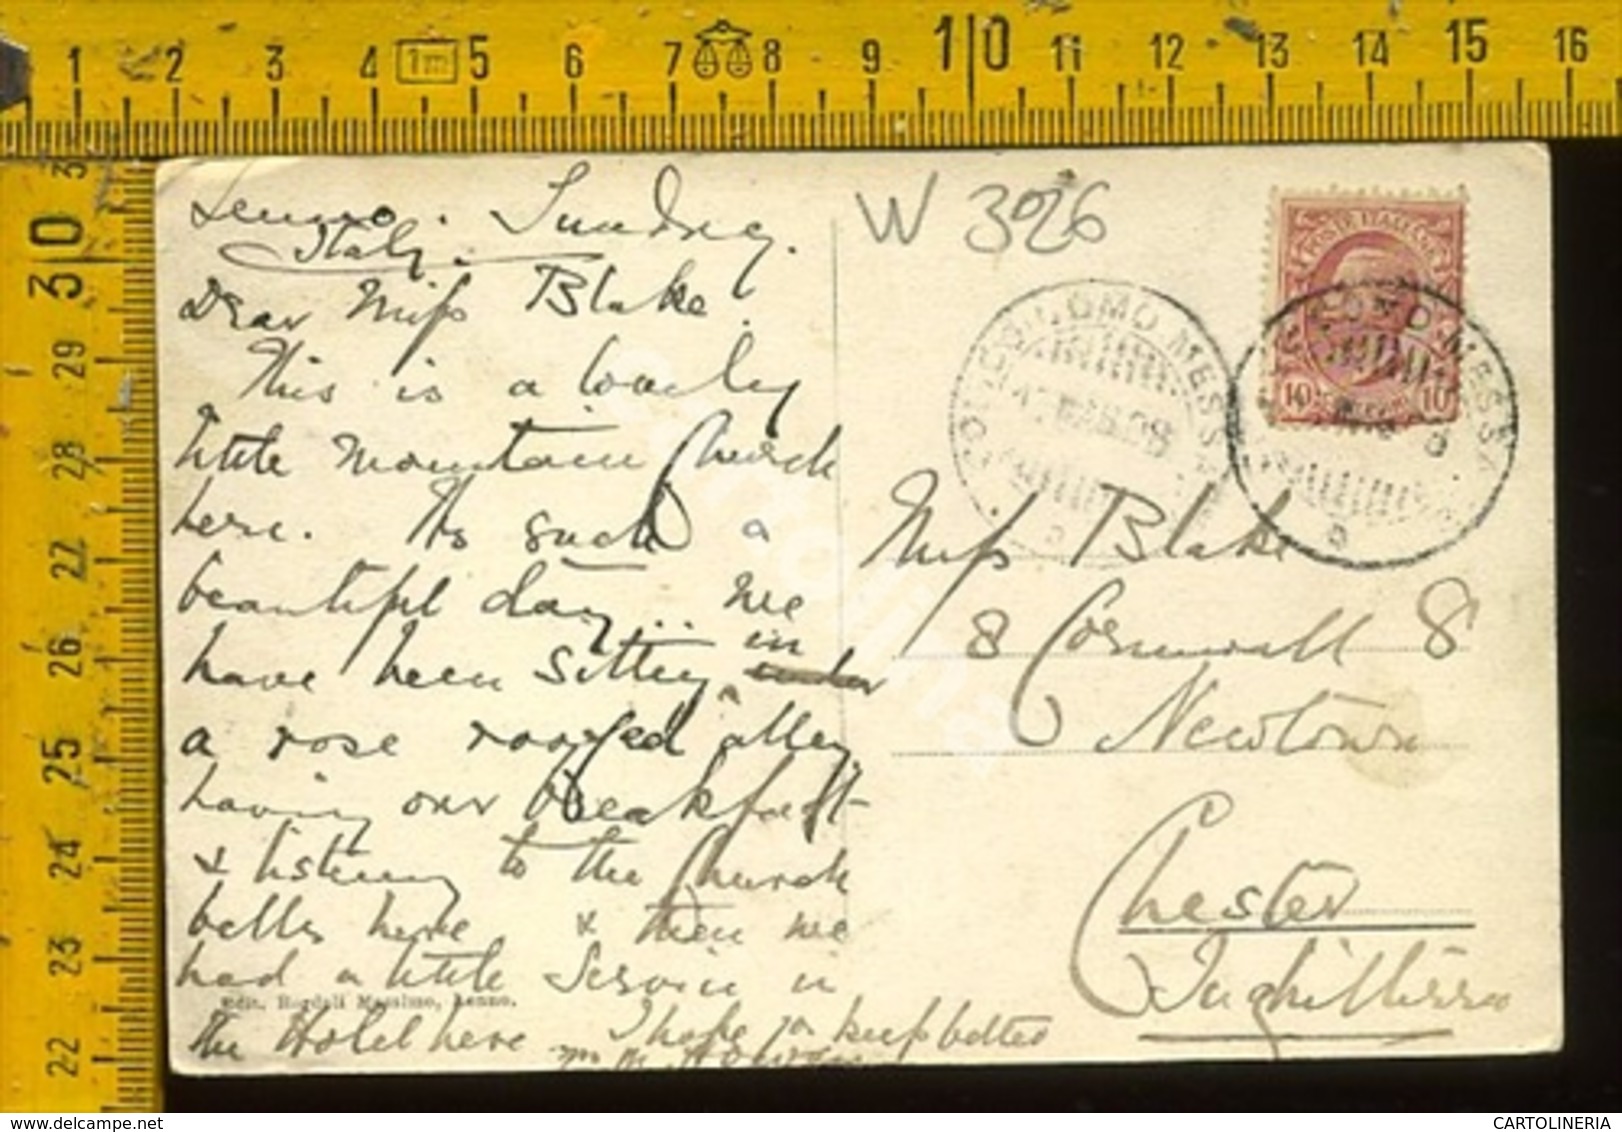 1 2 3 4 1m 5 6 7 8 9 10 11 12 13 14 15 16
30 29 28 27 26 25 24 23 22
W 3026
Lenno. Sunday.
Italy.
Dear Miss Blake.
This is a lovely
little mountain Church
here. Its such a
beautiful day.. We
have been sitting in
a rose roofed alley,
having our breakfast
& listening to the Church
bells here & then we
had a little Service in
the Hotel here I hope you keep better
Edit. Bordoli Massimo, Lenno.
COMO MESSA
10 10
Miss Blake
8 Cornwall S
Newtown
Chester
Inghilterra
CARTOLINERIA